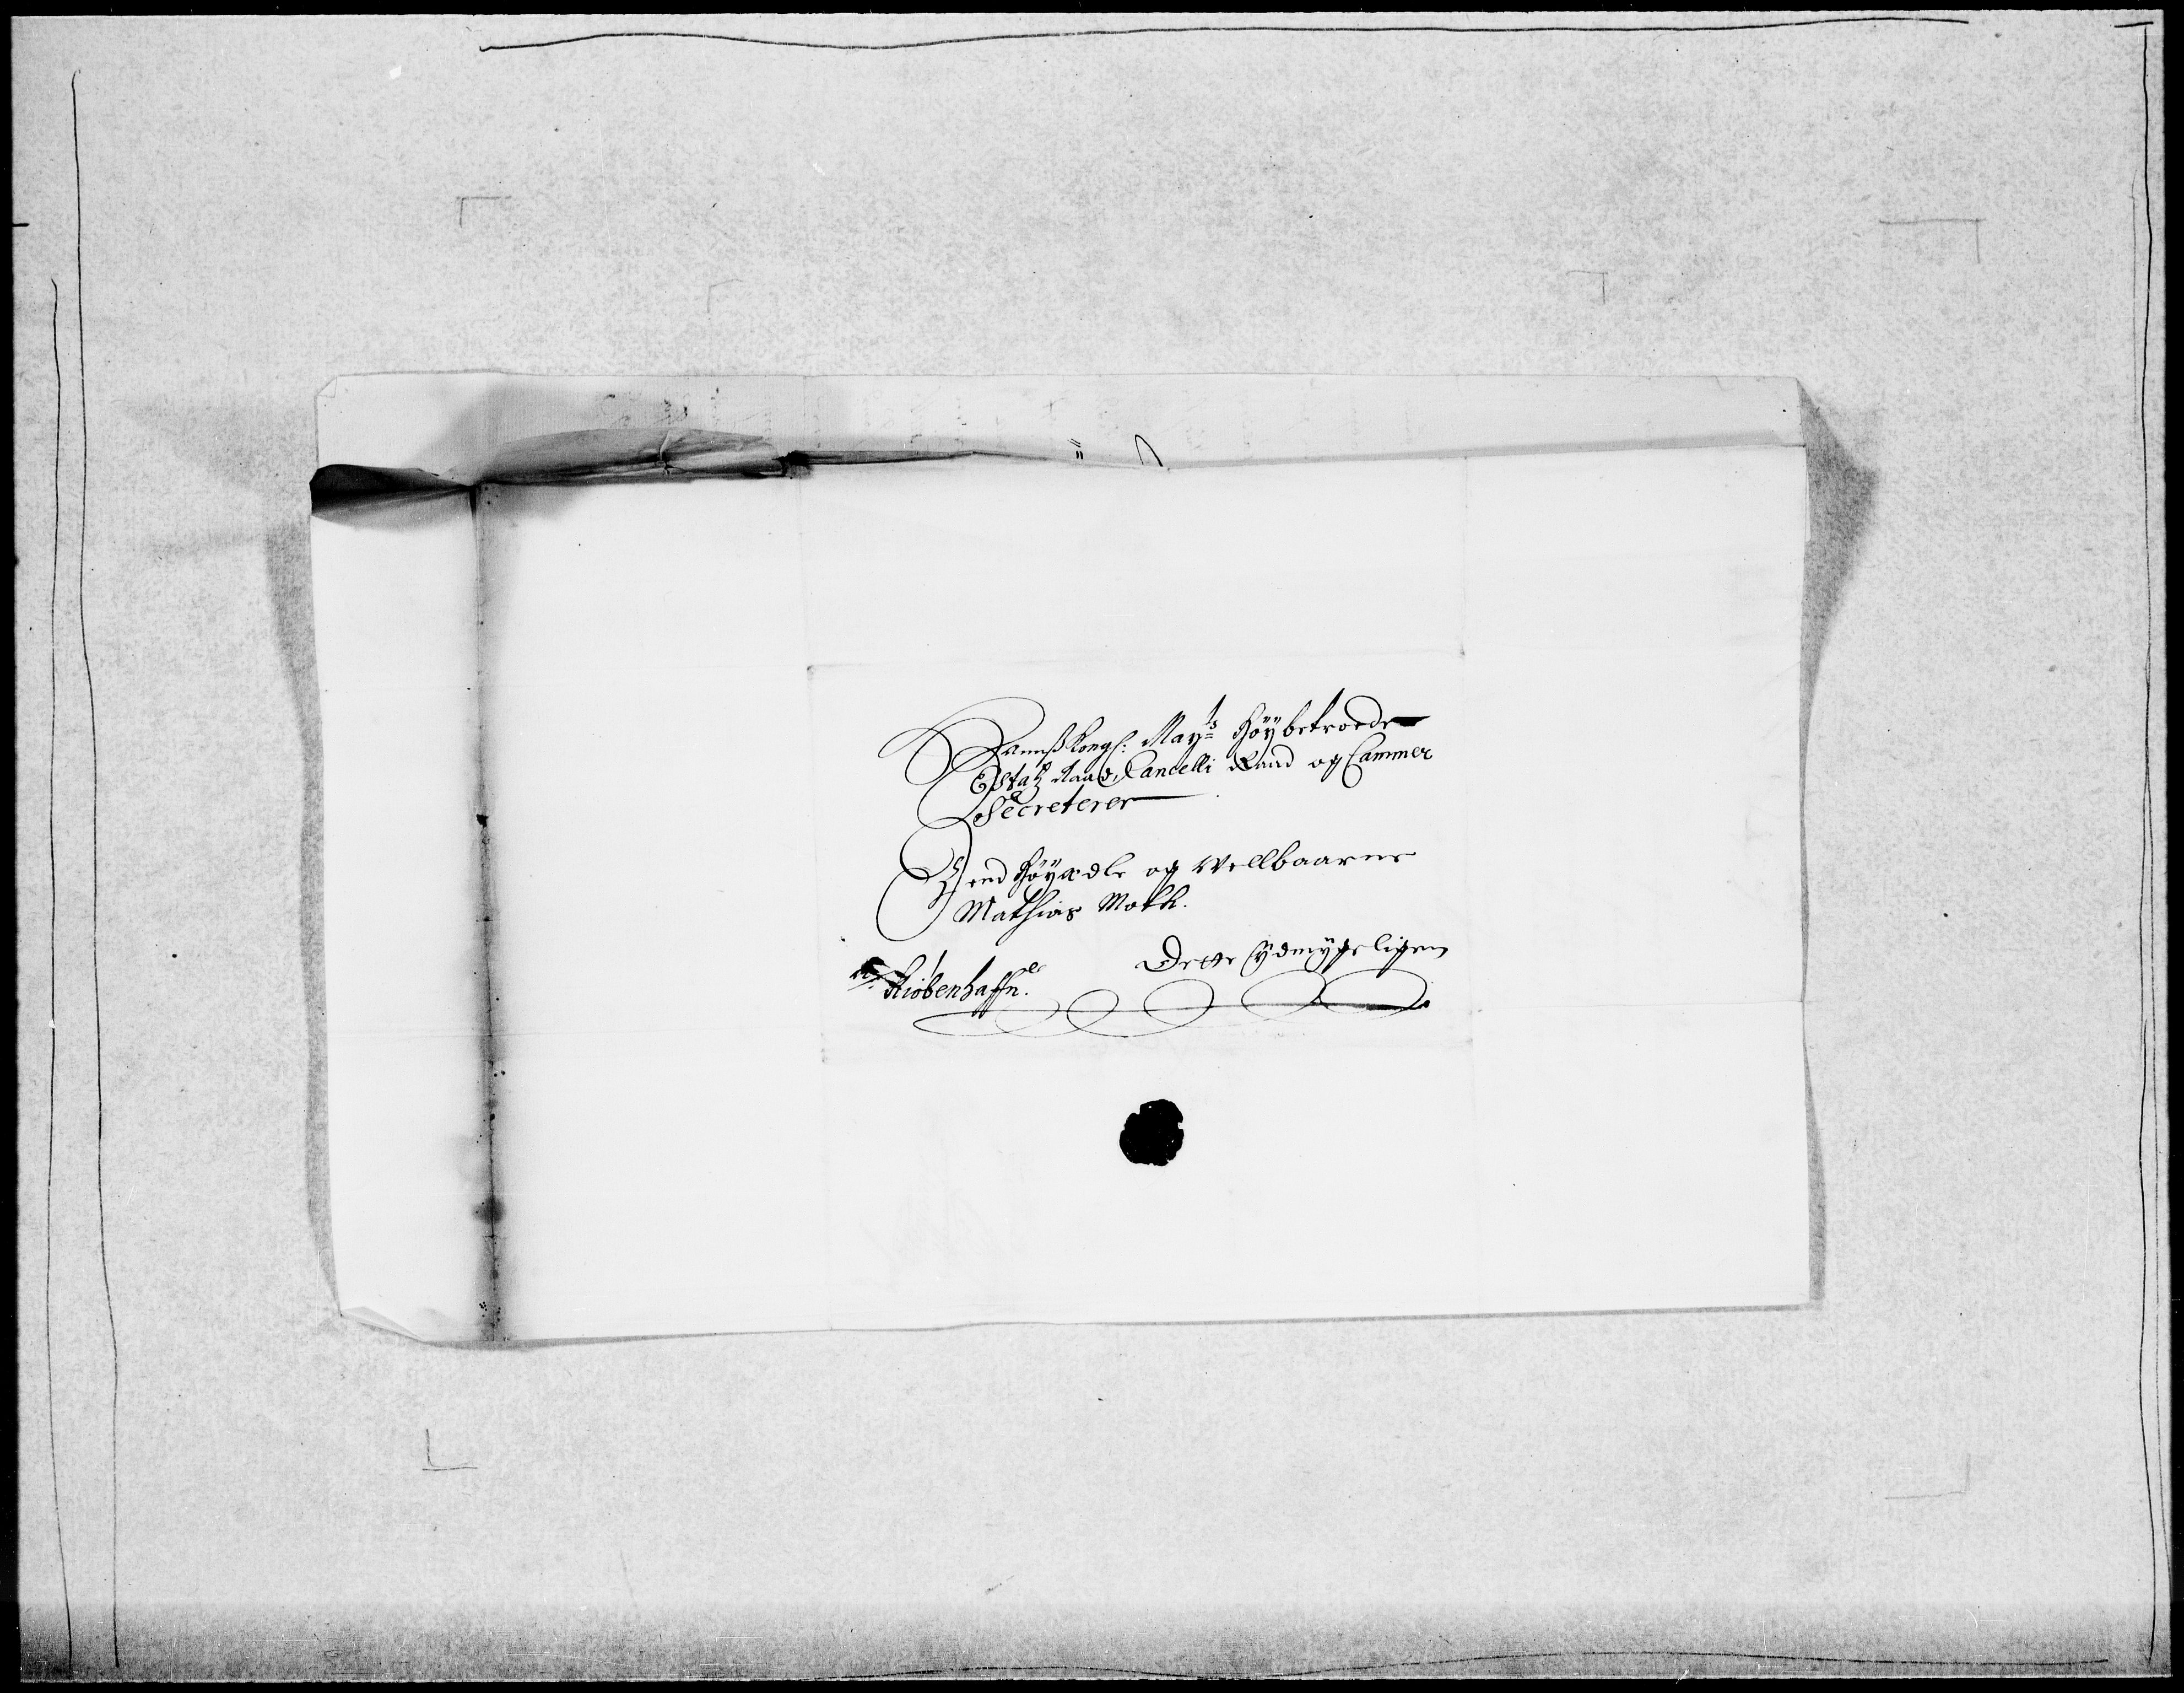 Dannß Kongl: May^ts Höybetroede
Estatz Raad, Cancelli Raad og Cammer
Secreterer
Dend Höyædle og Wellbaarne
Mathias Moth.
Dette Ydmygeligen
Kiöbenhaffn.